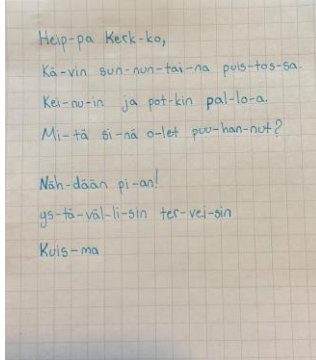 Heip-pa Kerk-ko,
Kä-vin sun-nun-tai-na puis-tos-sa.
Kei-nu-in ja pot-kin pal-lo-a.
Mi-tä si-nä o-let puu-han-nut?
Näh-dään pi-an!
ys-tä-väl-li-sin ter-vei-sin
Kuis-ma